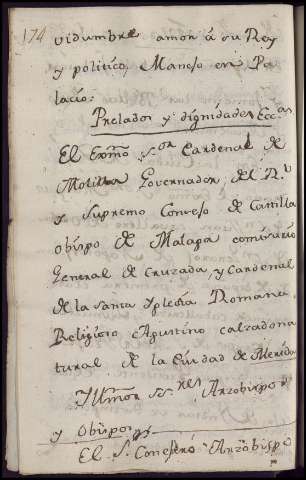 174
vidumbre amor á su Rey
y politico, Manejo en Pa
lacio:
Prelados y dignidades Ecc.as
El Exmo s.or Cardenal de
Molina Governador del R.l
y supremo Consejo de Castilla
obispo de Malaga comisario
General de Cruzada, y Cardenal
de la Santa Yglesia Romana,
Religioso Agustino calzado na
tural de la Ciudad de Merida
Illmos ss.res Arzobispos
y Obispos
El s. Consejero Arzobispo